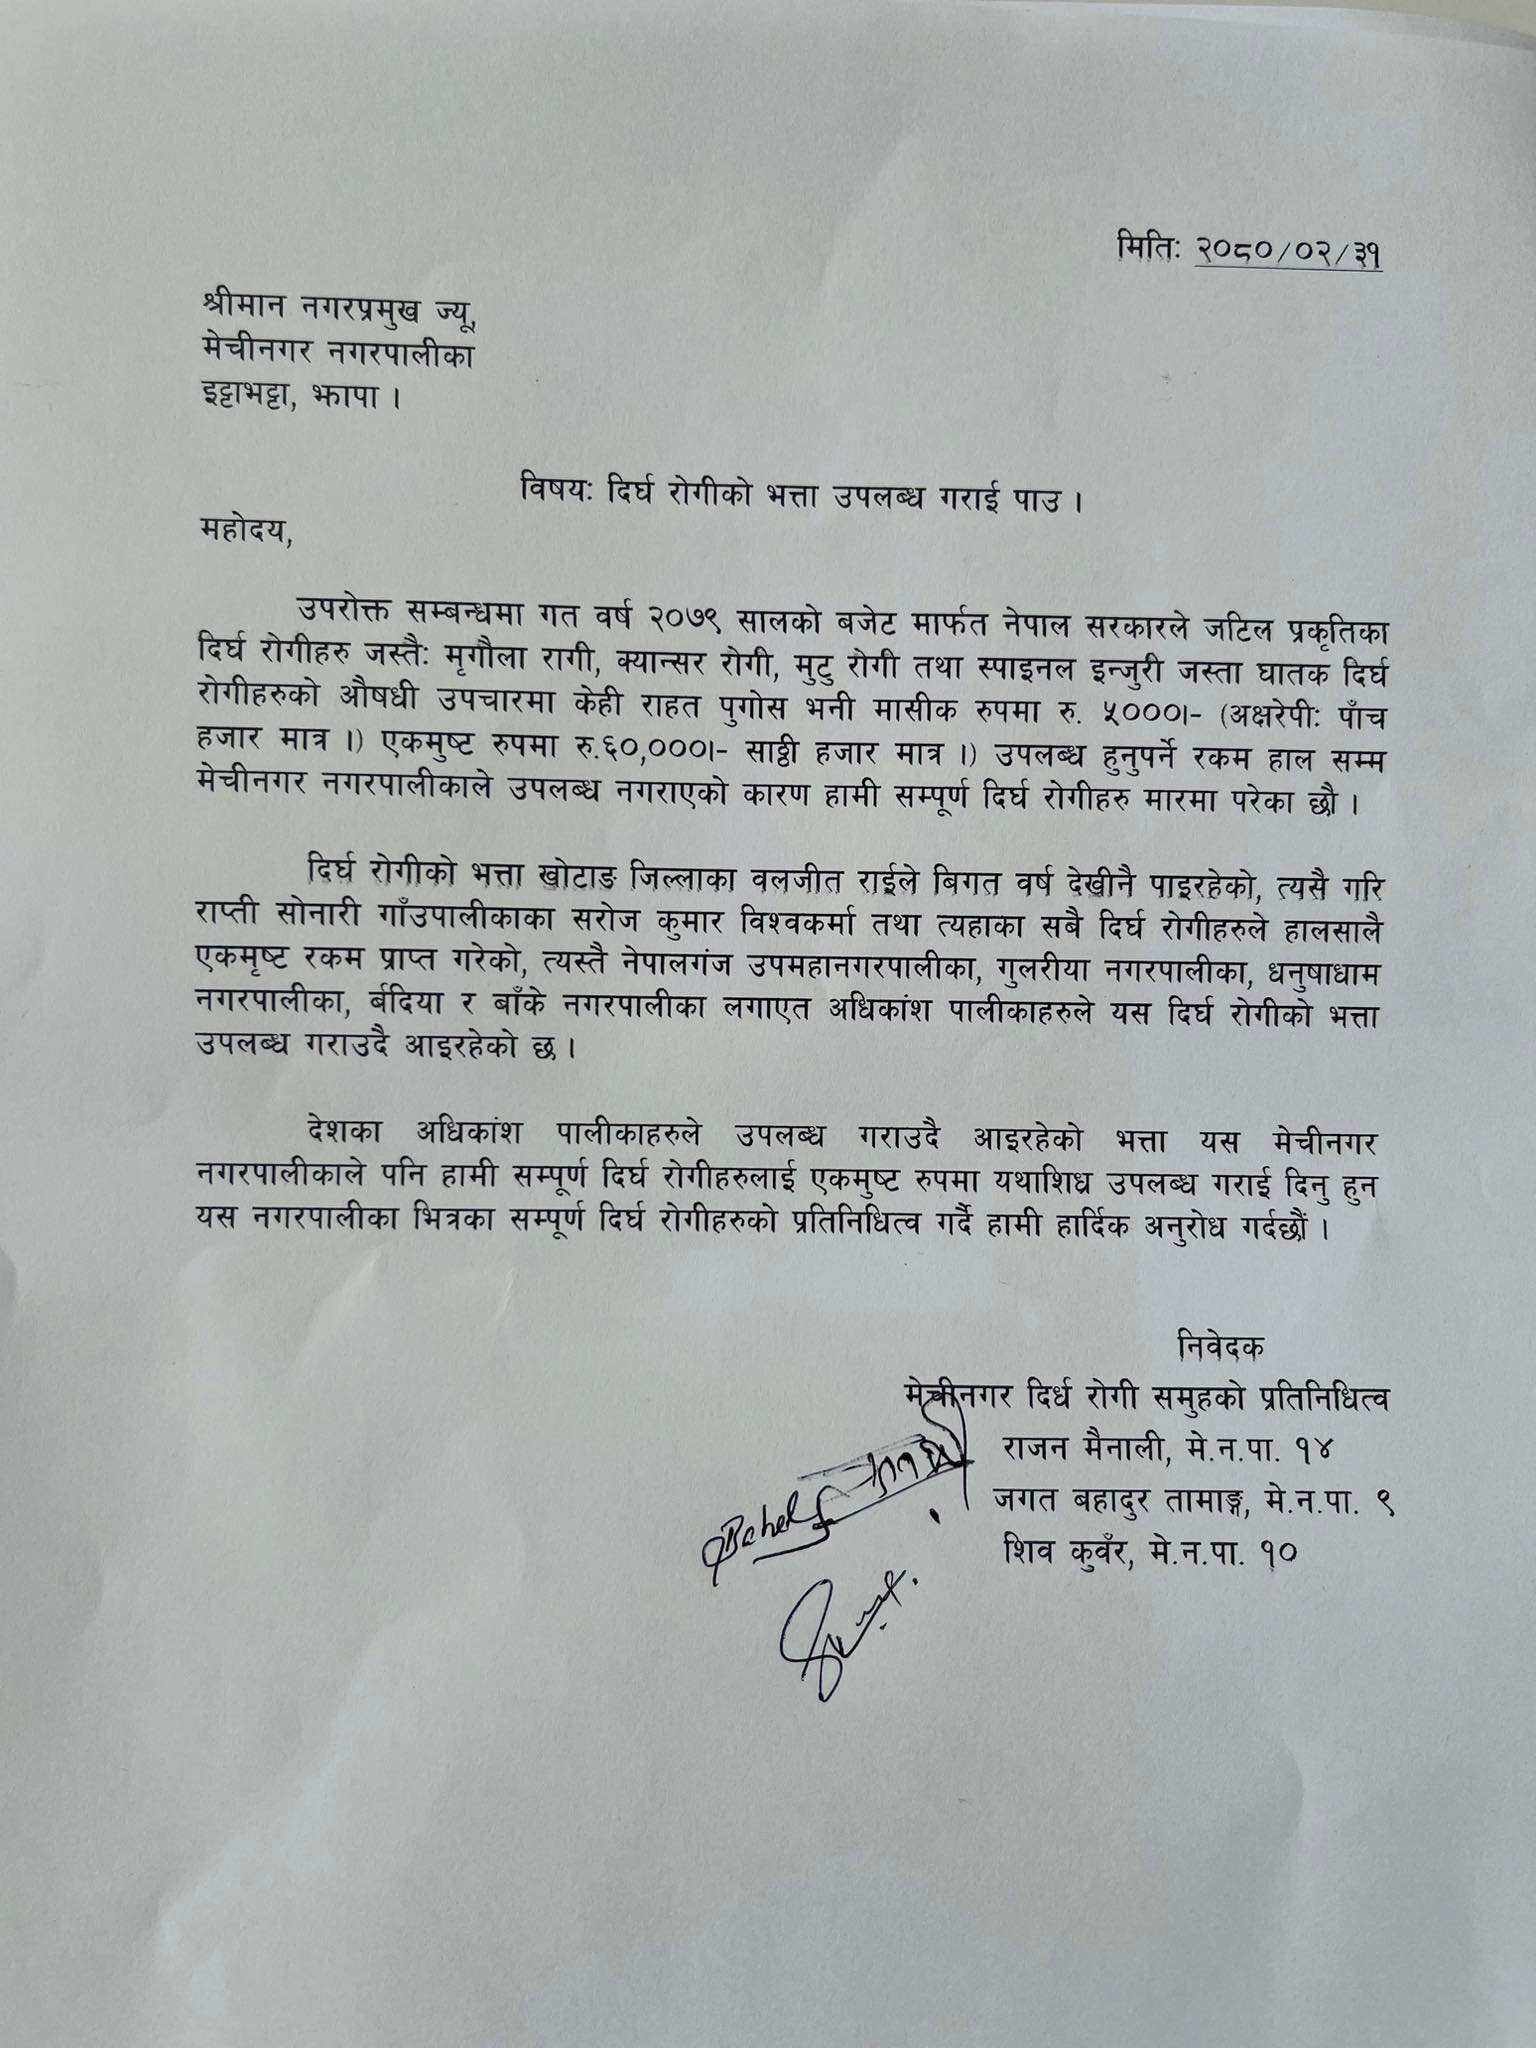 मितिः २०८०/०२/३१
श्रीमान नगरप्रमुख ज्यू,
मेचीनगर नगरपालीका
इट्टाभट्टा, झापा ।
विषयः दिर्घ रोगीको भत्ता उपलब्ध गराई पाउ ।
महोदय,
उपरोक्त सम्बन्धमा गत वर्ष २०७९ सालको बजेट मार्फत नेपाल सरकारले जटिल प्रकृतिका
दिर्घ रोगीहरु जस्तैः मृगौला रागी, क्यान्सर रोगी, मुटु रोगी तथा स्पाइनल इन्जुरी जस्ता घातक दिर्घ
रोगीहरुको औषधी उपचारमा केही राहत पुगोस भनी मासीक रुपमा रु. ५०००।- (अक्षरेपीः पाँच
हजार मात्र ।) एकमुष्ट रुपमा रु.६०,०००।- साठ्ठी हजार मात्र ।) उपलब्ध हुनुपर्ने रकम हाल सम्म
मेचीनगर नगरपालीकाले उपलब्ध नगराएको कारण हामी सम्पूर्ण दिर्घ रोगीहरु मारमा परेका छौ ।
दिर्घ रोगीको भत्ता खोटाङ जिल्लाका वलजीत राईले बिगत वर्ष देखीनै पाइरहेको, त्यसै गरि
राप्ती सोनारी गाँउपालीकाका सरोज कुमार विश्वकर्मा तथा त्यहाका सबै दिर्घ रोगीहरुले हालसालै
एकमृष्ट रकम प्राप्त गरेको, त्यस्तै नेपालगंज उपमहानगरपालीका, गुलरीया नगरपालीका, धनुषाधाम
नगरपालीका, र्बदिया र बाँके नगरपालीका लगाएत अधिकांश पालीकाहरुले यस दिर्घ रोगीको भत्ता
उपलब्ध गराउदै आइरहेको छ ।
देशका अधिकांश पालीकाहरुले उपलब्ध गराउदै आइरहेको भत्ता यस मेचीनगर
नगरपालीकाले पनि हामी सम्पूर्ण दिर्घ रोगीहरुलाई एकमुष्ट रुपमा यथाशिध्र उपलब्ध गराई दिनु हुन
यस नगरपालीका भित्रका सम्पूर्ण दिर्घ रोगीहरुको प्रतिनिधित्व गर्दै हामी हार्दिक अनुरोध गर्दछौं ।
निवेदक
मेचीनगर दिर्ध रोगी समुहको प्रतिनिधित्व
राजन मैनाली, मे.न.पा. १४
जगत बहादुर तामाङ्ग, मे.न.पा. ९
शिव कुवँर, मे.न.पा. १०